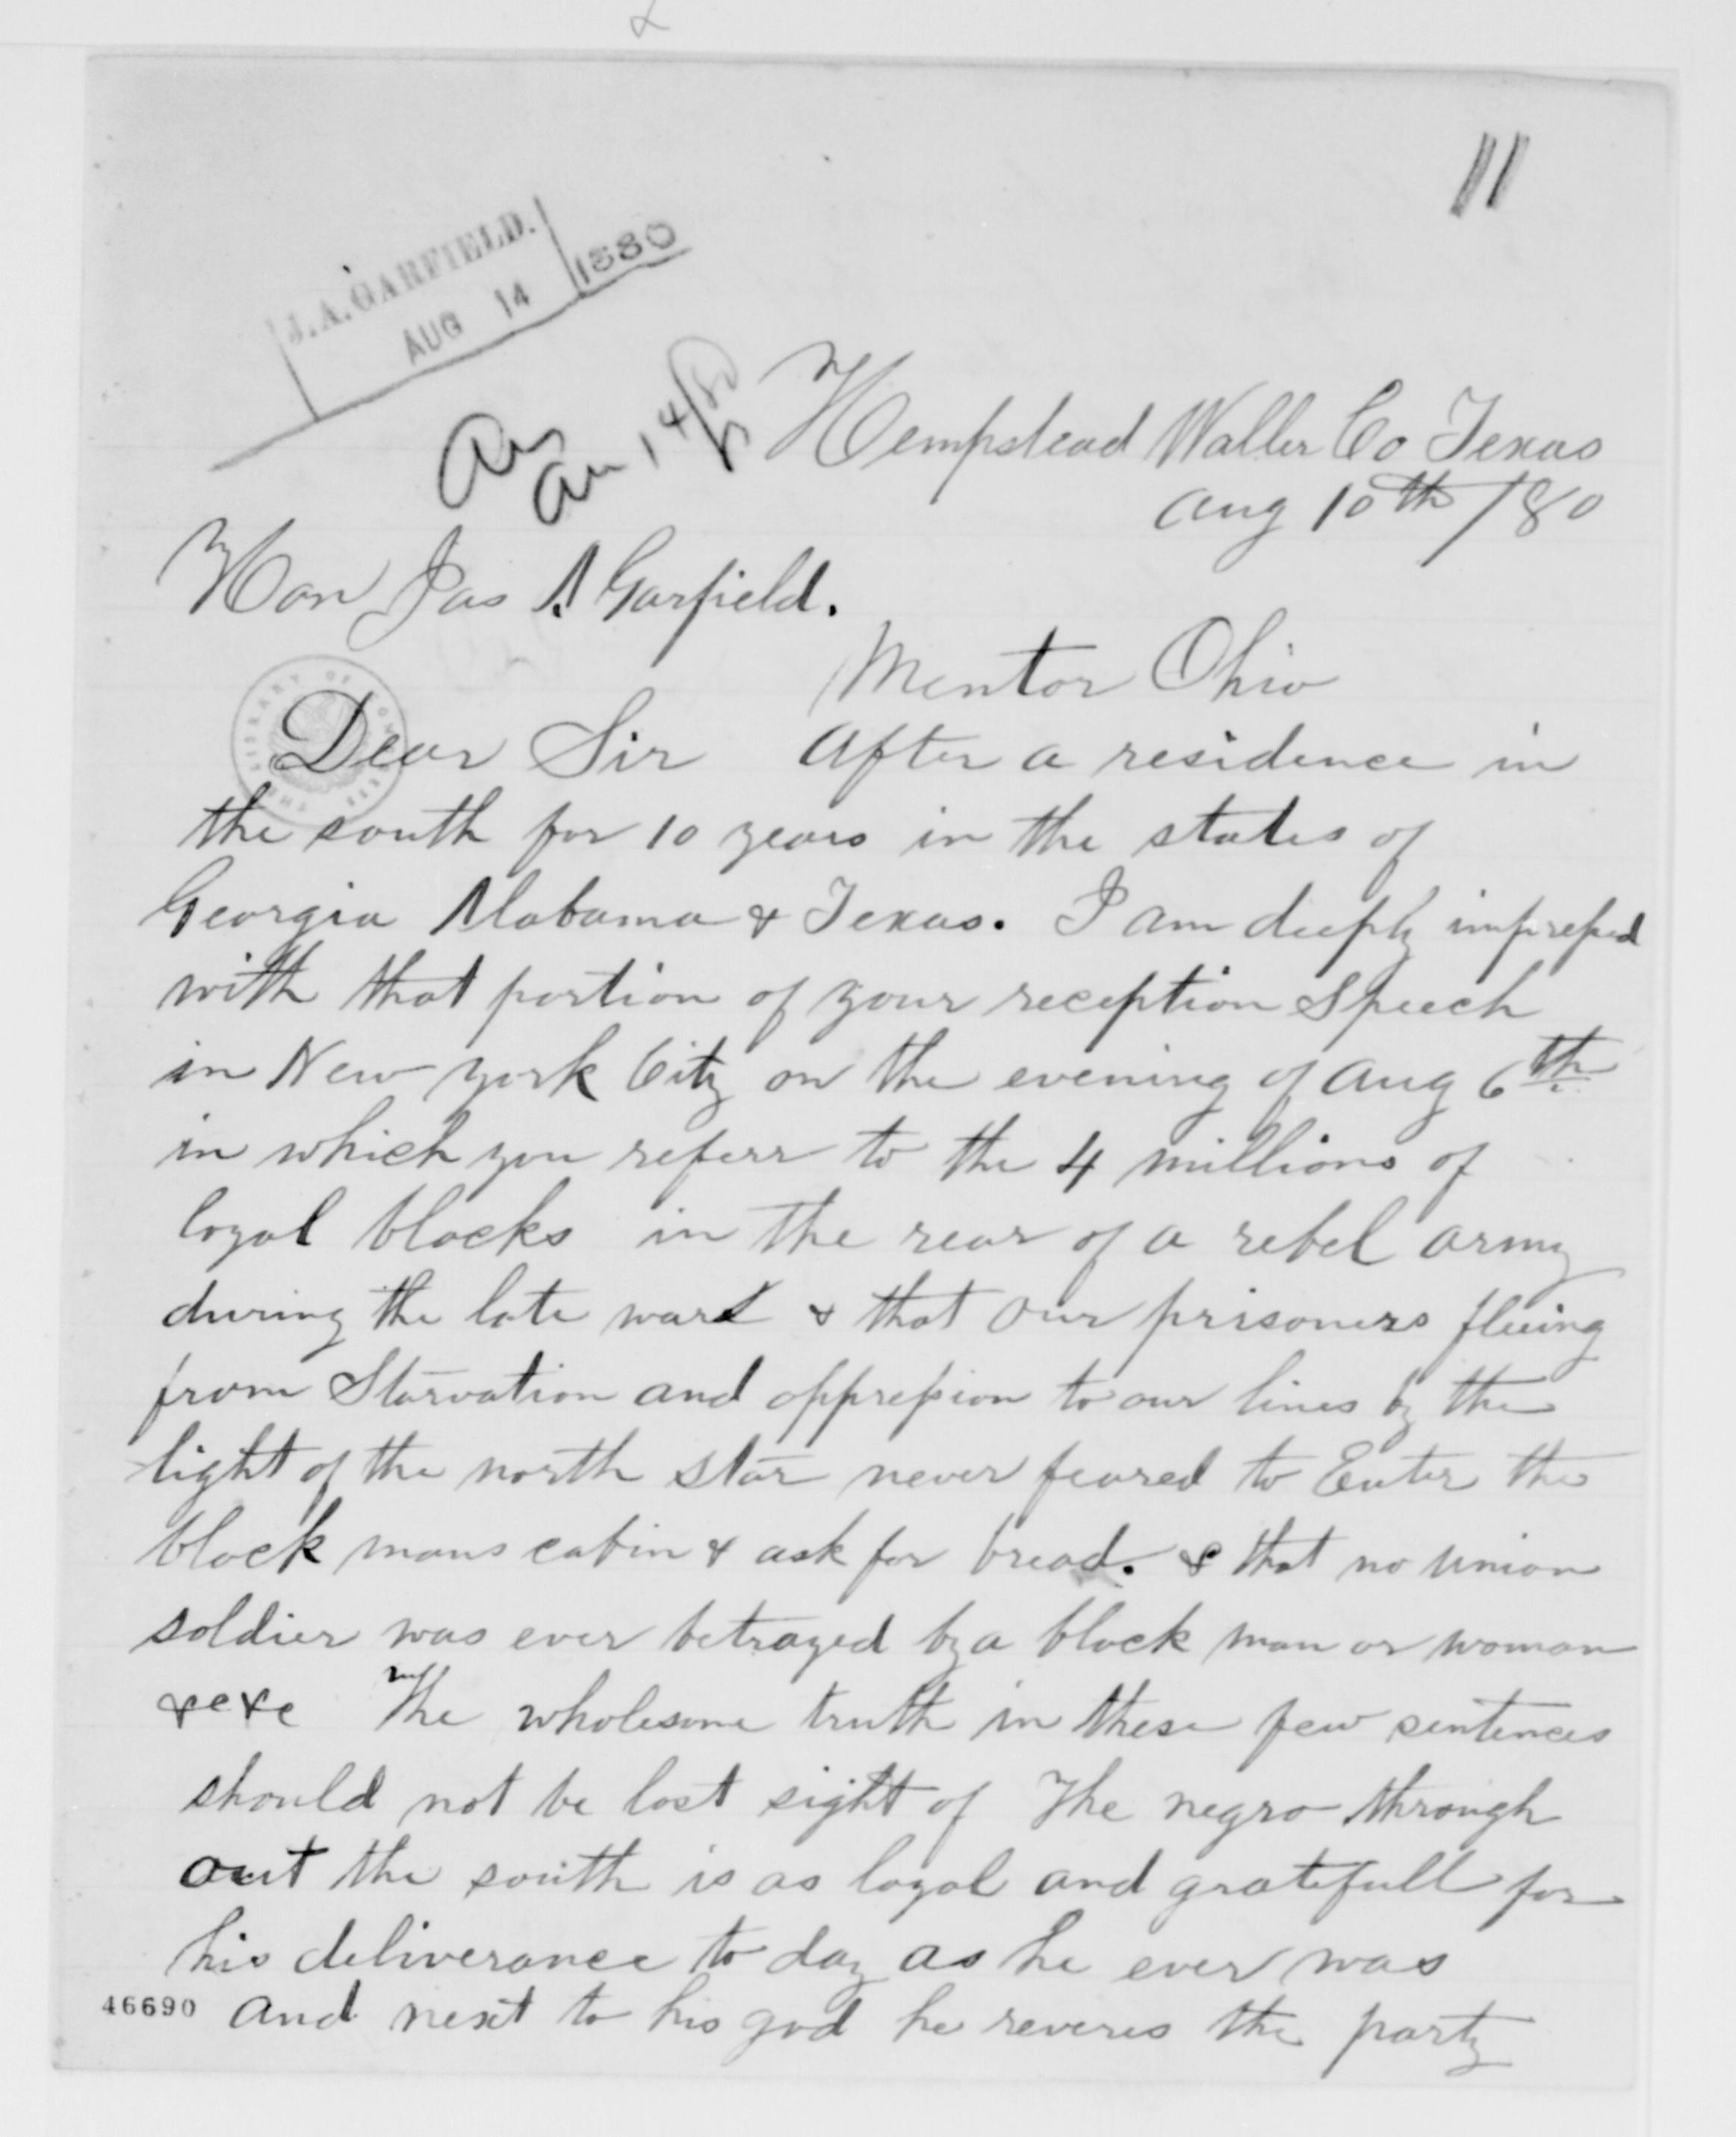 11
J.A. GARFIELD.
AUG 14 1880
Hempstead Waller Co Texas
Aug 10th /80
Hon Jas A Garfield.
Mentor Ohio
Dear Sir After a residence in
the south for 10 years in the states of
Georgia Alabama & Texas. I am deeply impressed
with that portion of your reception Speech
in New York City on the evening of Aug 6th
in which you referr to the 4 millions of
loyal blacks in the rear of a rebel army
during the late war & that our prisoners fleeing
from Starvation and oppression to our lines by the
light of the north star never feared to Enter the
black mans cabin & ask for bread. & that no union
soldier was ever betrayed by a black man or woman
&c&c The wholesome truth in these few sentences
should not be lost sight of The negro through
out the south is as loyal and gratefull for
his deliverance to day as he ever was
46690 and next to his god he reveres the party